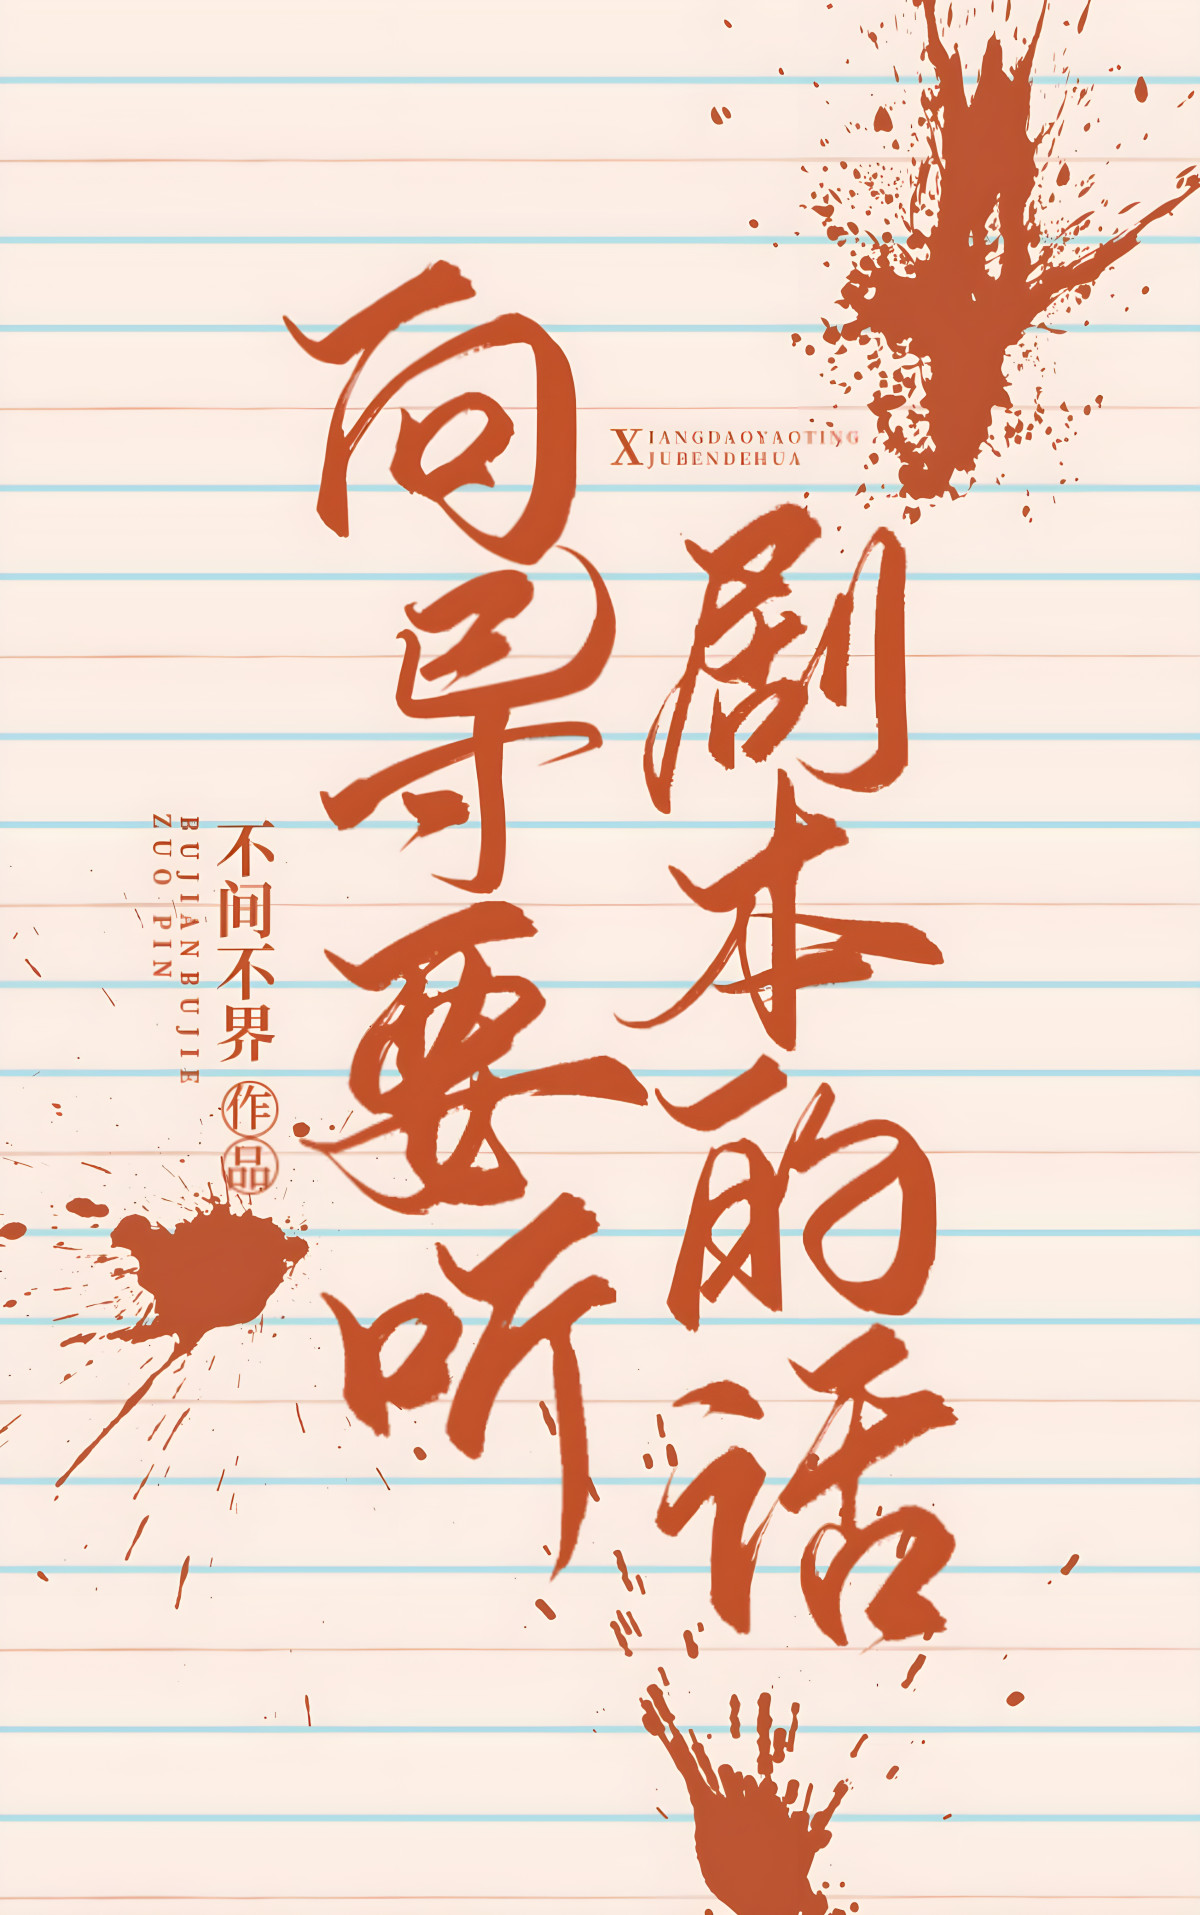 向导要听
XIANGDAOYAOTING
JUBENDEHUA
剧本的话
不间不界
作品
BUJIANBUJIE
ZUO PIN